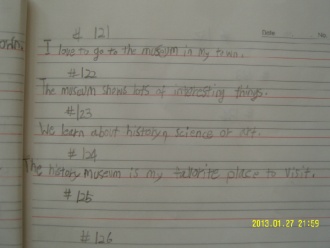 # 121
I love to go to the museum in my town.
# 122
The museum shows lots of interesting things.
# 123
We learn about history, science or art.
# 124
The history museum is my favorite place to visit.
# 125
# 126
Date
No
2013.01.27 21:59